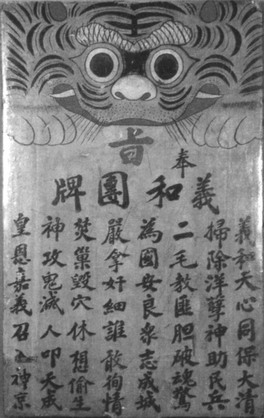 奉
旨
義和團牌
義和天心同保大清
掃除洋孽神助民兵
二毛教匪膽破魂驚
為國安良衆志成城
嚴拿奸細誰敢徇情
焚巢毀穴休想偷生
神攻鬼滅人叩大成
皇恩嘉義召神京